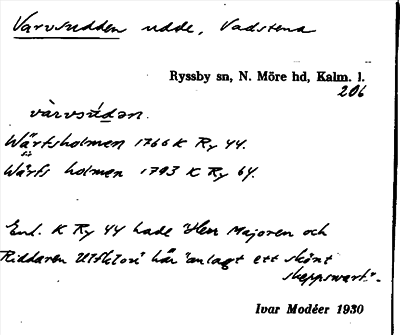 Varvsudden udde, Vadstena
Ryssby sn, N. Möre hd, Kalm. l.
206
vàrvsúdən.
Wärfsholmen 1766 K Ry 44.
Wårfs holmen 1793 K Ry 64.
Enl. K Ry 44 hade "Herr Majoren och
Riddaren Utfklou" här "anlagt ett skönt
skeppswarf".
Ivar Modéer 1930